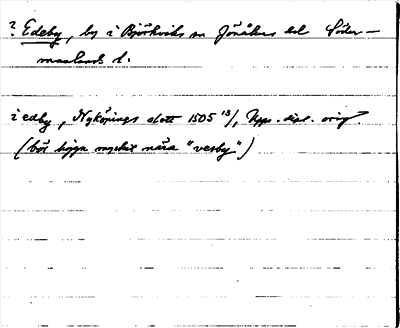 ? Edeby, by i Björkviks sn Jönåkers hd Söder-
manlands l.
i edby, Nyköpings slott 1505 13/1, Upps. dipl. orig.
(bör ligga mycket nära "vesby")